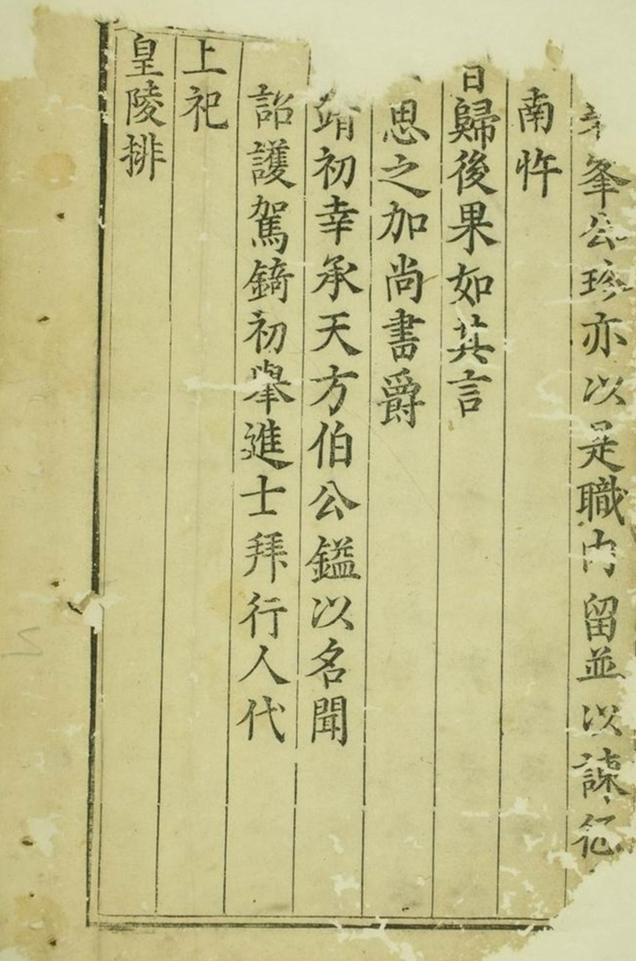 峯公珍亦以是職內留並以諫征
南忤
歸後果如其言
思之加尚書爵
靖初幸承天方伯公鎰以名聞
詔護駕錡初舉進士拜行人代
上祀
皇陵排